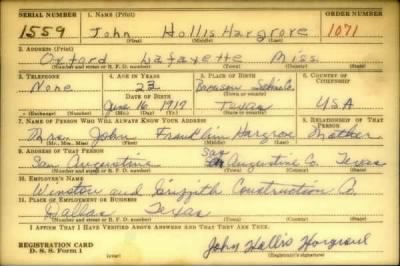 SERIAL NUMBER 1. NAME (Print) ORDER NUMBER
1559 John Hollis Hargrove 1071
(First) (Middle) (Last)
2. ADDRESS (Print)
Oxford Lafayette Miss.
(Number and street or R. F. D. number) (Town) (County) (State)
3. TELEPHONE 4. AGE IN YEARS 5. PLACE OF BIRTH 6. COUNTRY OF CITIZENSHIP
None 23 Bronson Sabine Co.
DATE OF BIRTH
June 16, 1917 Texas USA
(Exchange) (Number) (Mo.) (Day) (Yr.) (State or country)
7. NAME OF PERSON WHO WILL ALWAYS KNOW YOUR ADDRESS 8. RELATIONSHIP OF THAT PERSON
Mrs. John Franklin Hargrove Mother
(Mr., Mrs., Miss) (First) (Middle) (Last)
9. ADDRESS OF THAT PERSON
San Augustine San Augustine Co. Texas
(Number and street or R. F. D. number) (Town) (County) (State)
10. EMPLOYER'S NAME
Winston and Griffith Construction Co.
11. PLACE OF EMPLOYMENT OR BUSINESS
Dallas Texas
(Number and street or R. F. D. number) (Town) (County) (State)
I AFFIRM THAT I HAVE VERIFIED ABOVE ANSWERS AND THAT THEY ARE TRUE.
REGISTRATION CARD
D. S. S. Form 1
(over)
John Hollis Hargrove
(Registrant's signature)